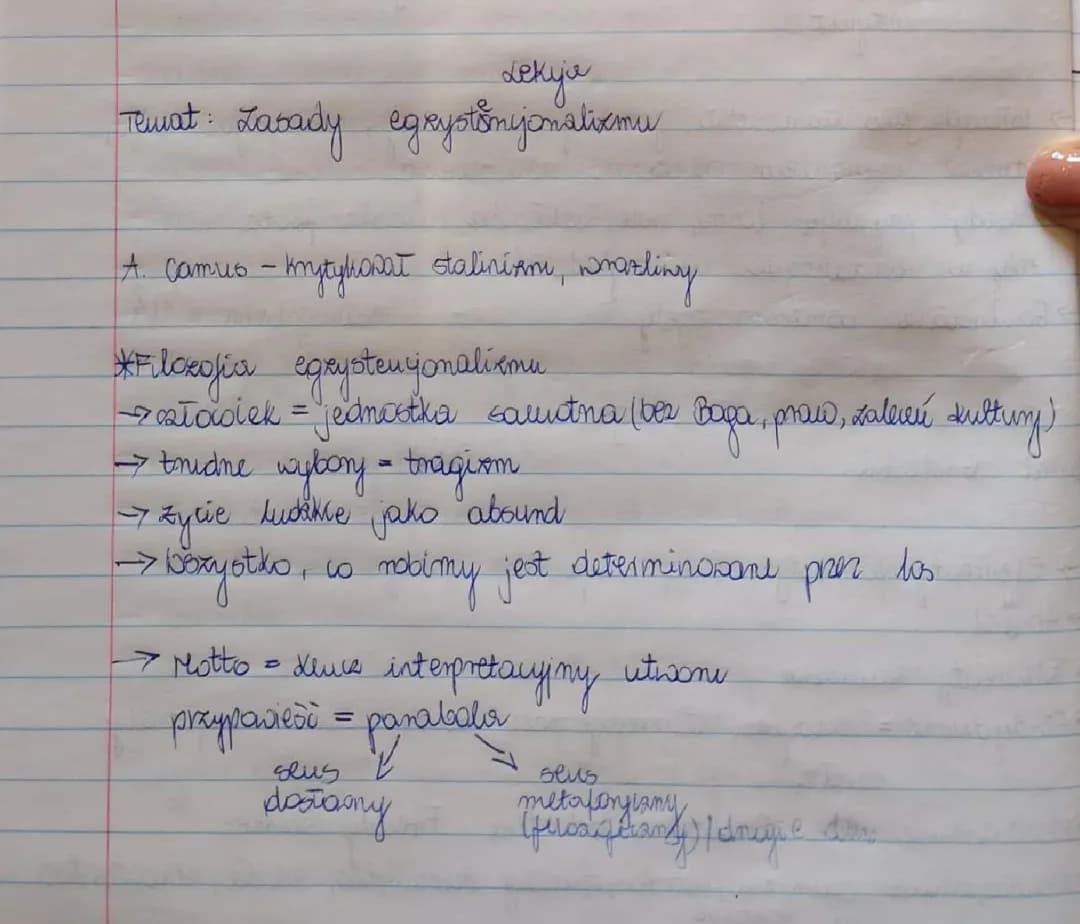 Lekcja
Temat: Zasady egzystencjonalizmu
A. Camus - krytykował stalinizm, wrażliwy
*Filozofia egzystencjonalizmu
→ człowiek = jednostka samotna (bez Boga, praw, zaleceń kultury)
→ trudne wybory = tragizm
→ życie ludzkie jako absurd
→ wszystko, co robimy jest determinowane przez los
→ Motto = klucz interpretacyjny utworu
przypowieść = parabola
sens dostowny
sens metaforyczny
(filozoficzny) / drugie